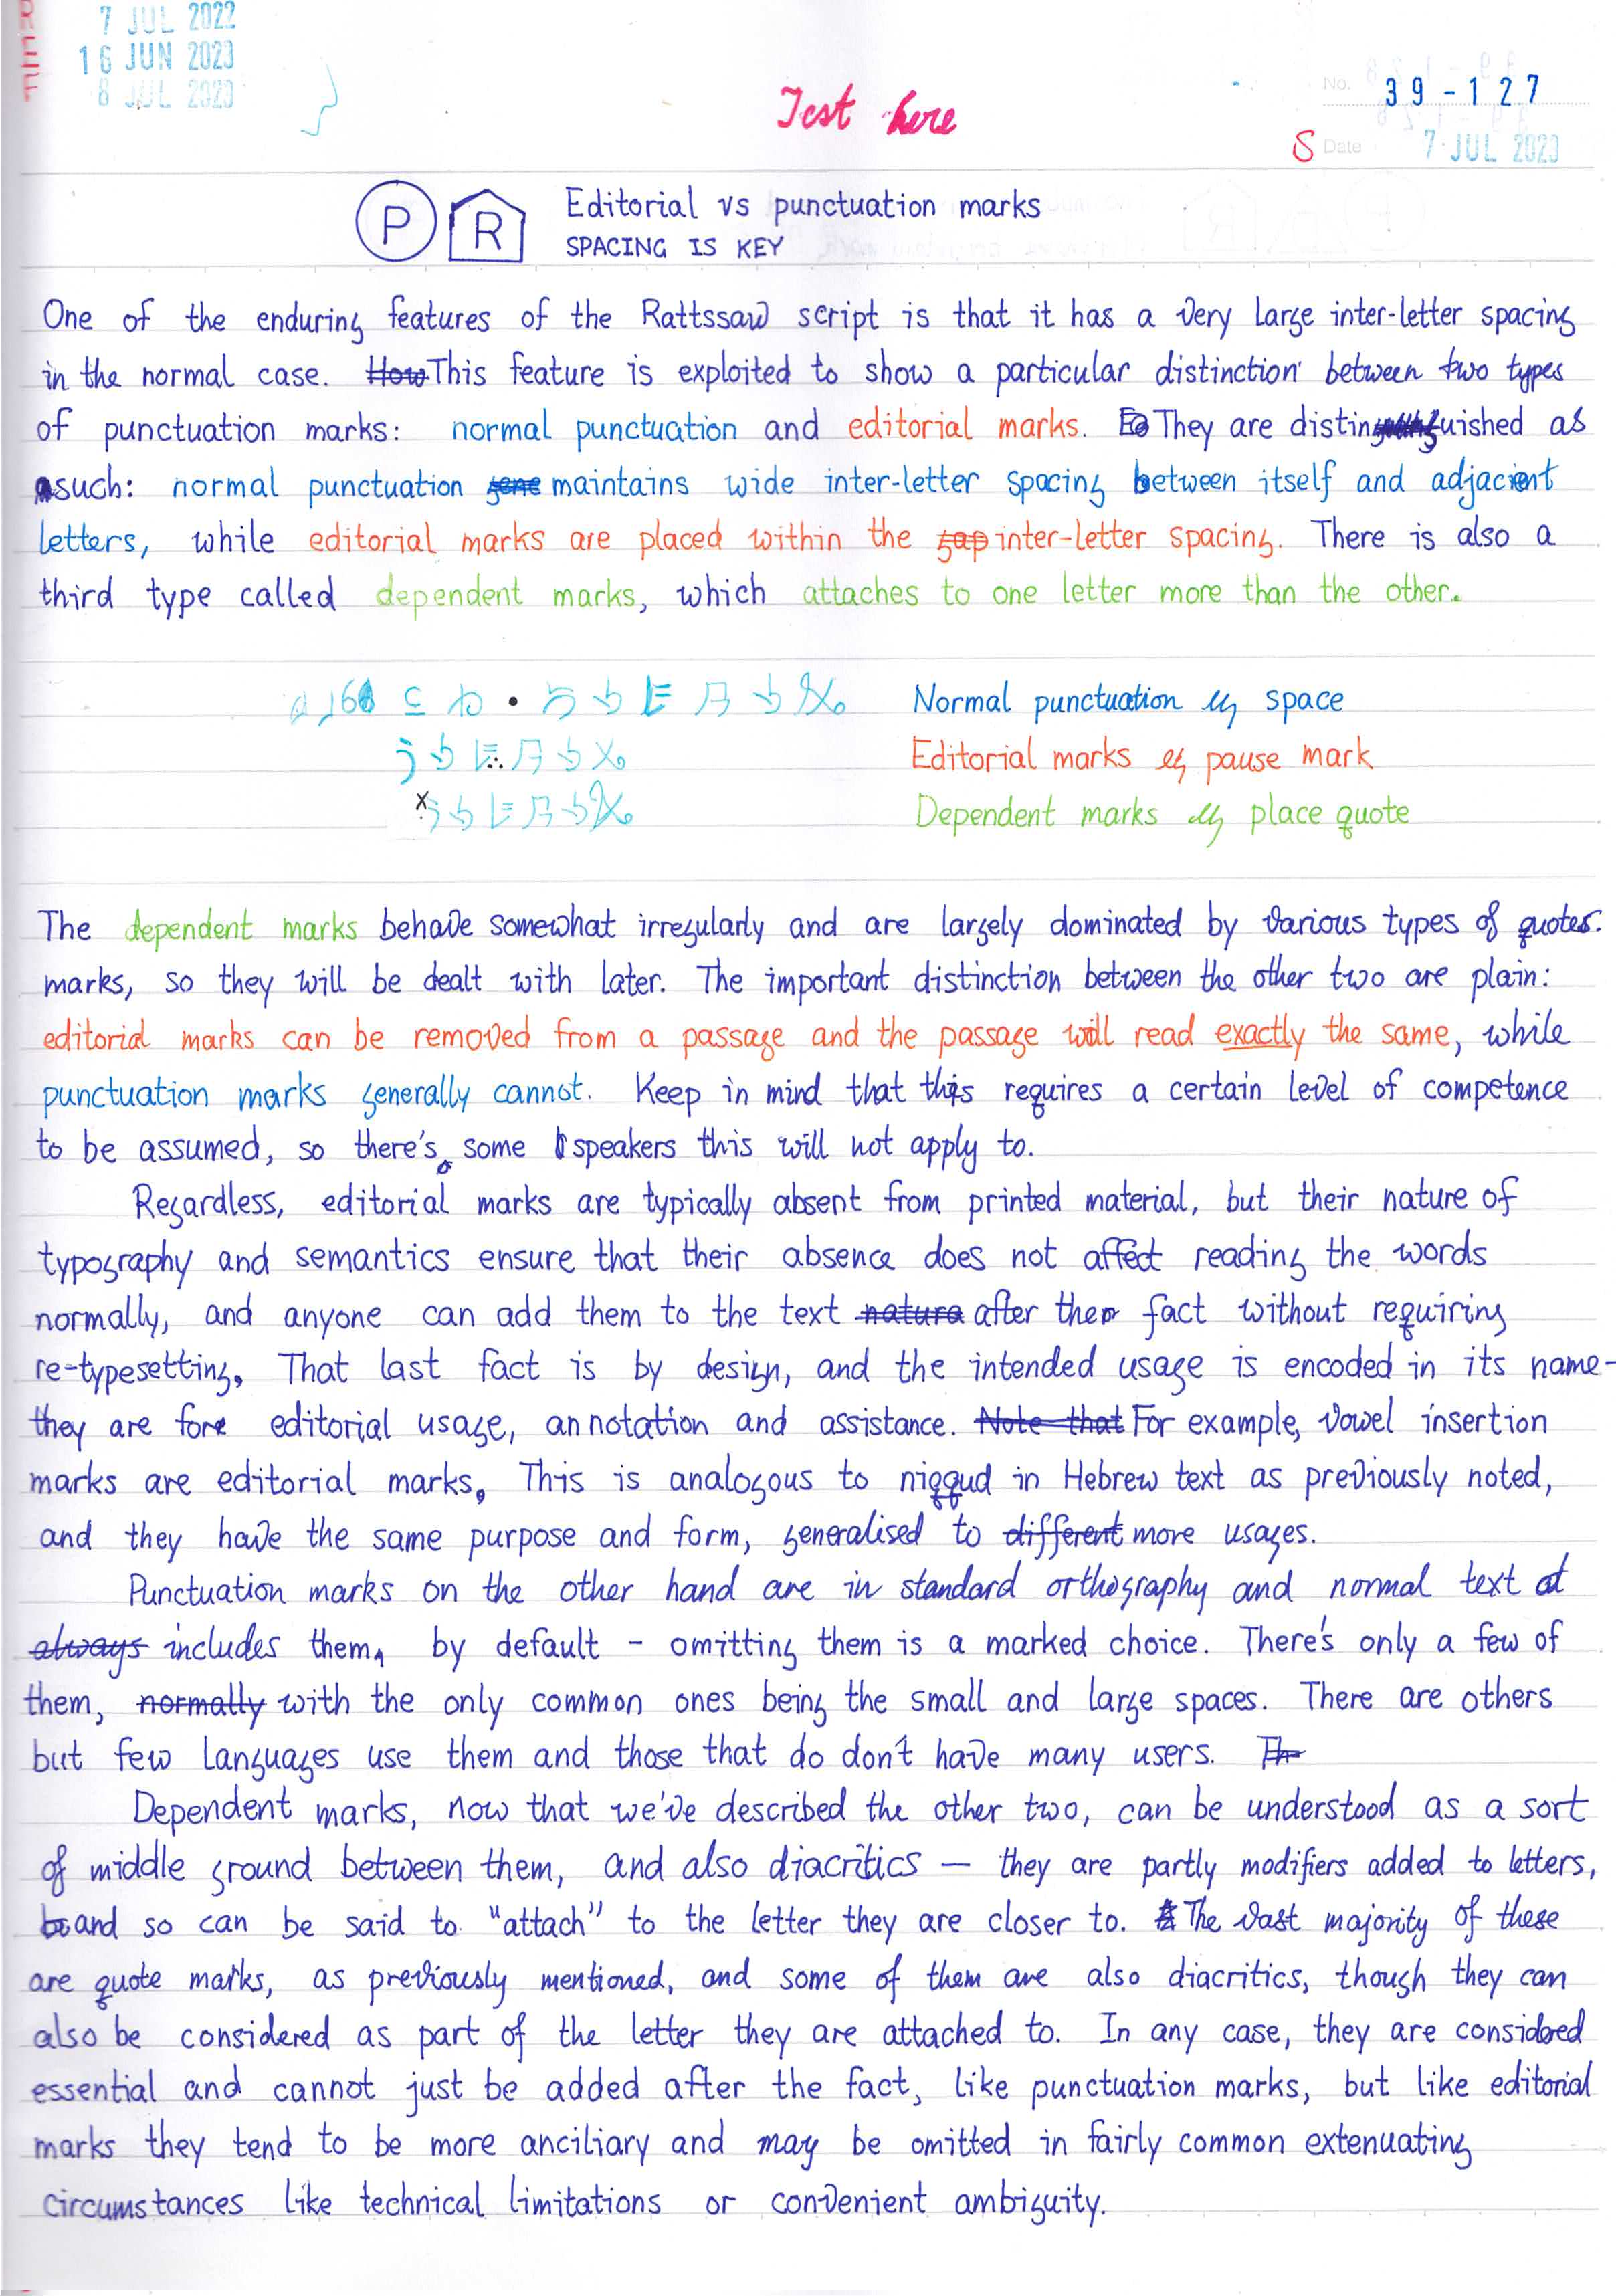 7 JUL 2022
16 JUN 2023
8 JUL 2023
Test here
No. 39-127
S Date 7 JUL 2023
P R Editorial vs punctuation marks
SPACING IS KEY
One of the enduring features of the Rattssaw script is that it has a very large inter-letter spacing
in the normal case. How This feature is exploited to show a particular distinction between two types
of punctuation marks: normal punctuation and editorial marks. They are distinguished as
such: normal punctuation maintains wide inter-letter spacing between itself and adjacent
letters, while editorial marks are placed within the gap inter-letter spacing. There is also a
third type called dependent marks, which attaches to one letter more than the other.
Normal punctuation eg space
Editorial marks eg pause mark
Dependent marks eg place quote
The dependent marks behave somewhat irregularly and are largely dominated by various types of quotes.
marks, so they will be dealt with later. The important distinction between the other two are plain:
editorial marks can be removed from a passage and the passage will read exactly the same, while
punctuation marks generally cannot. Keep in mind that this requires a certain level of competence
to be assumed, so there's some speakers this will not apply to.
Regardless, editorial marks are typically absent from printed material, but their nature of
typography and semantics ensure that their absence does not affect reading the words
normally, and anyone can add them to the text natura after the fact without requiring
re-typesetting. That last fact is by design, and the intended usage is encoded in its name-
they are for editorial usage, annotation and assistance. Note that For example, vowel insertion
marks are editorial marks. This is analogous to niqqud in Hebrew text as previously noted,
and they have the same purpose and form, generalised to different more usages.
Punctuation marks on the other hand are in standard orthography and normal text at
always includes them, by default - omitting them is a marked choice. There's only a few of
them, normally with the only common ones being the small and large spaces. There are others
but few languages use them and those that do don't have many users. Th
Dependent marks, now that we've described the other two, can be understood as a sort
of middle ground between them, and also diacritics — they are partly modifiers added to letters,
and so can be said to "attach" to the letter they are closer to. The vast majority of these
are quote marks, as previously mentioned, and some of them are also diacritics, though they can
also be considered as part of the letter they are attached to. In any case, they are considered
essential and cannot just be added after the fact, like punctuation marks, but like editorial
marks they tend to be more anciliary and may be omitted in fairly common extenuating
circumstances like technical limitations or convenient ambiguity.